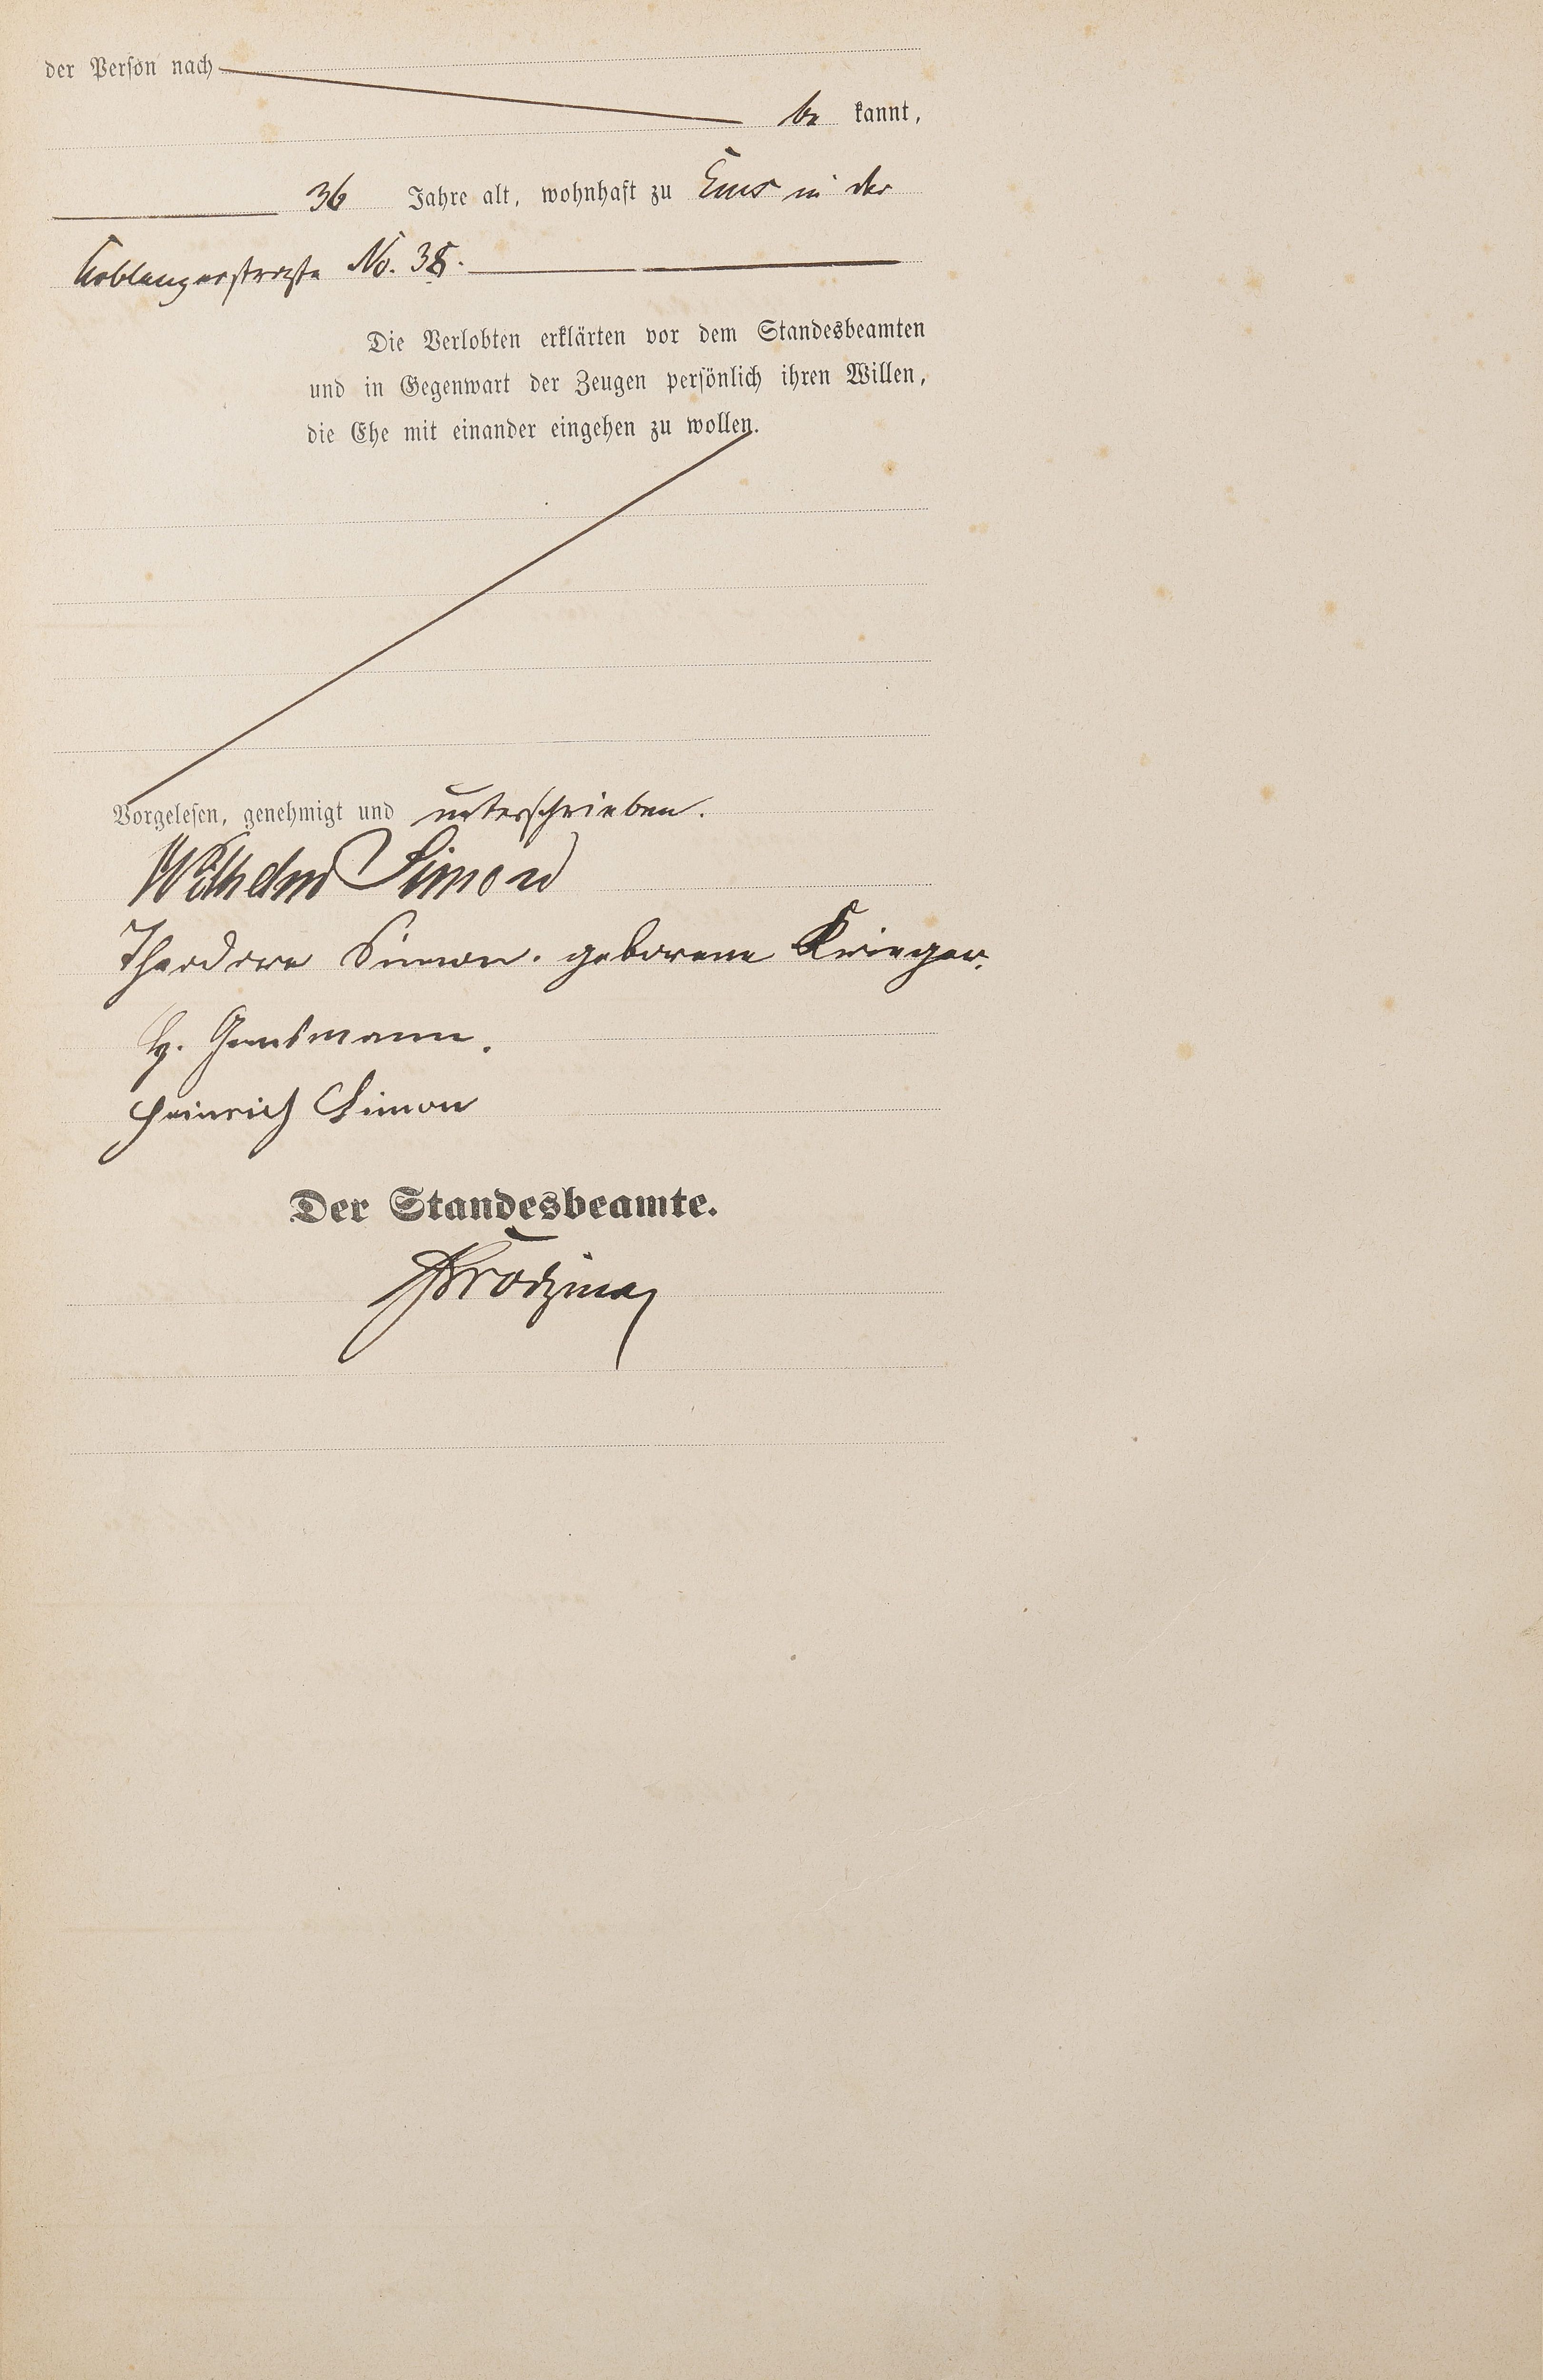 der Person nach
be kannt,
36 Jahre alt, wohnhaft zu Ems in der
Koblenzerstraße No. 38.
Die Verlobten erklärten vor dem Standesbeamten
und in Gegenwart der Zeugen persönlich ihren Willen,
die Ehe mit einander eingehen zu wollen.
Vorgelesen, genehmigt und unterschrieben.
Wilhelm Simon
Theodore Simon. geborene Krieger.
Heinrich Simon
Der Standesbeamte.